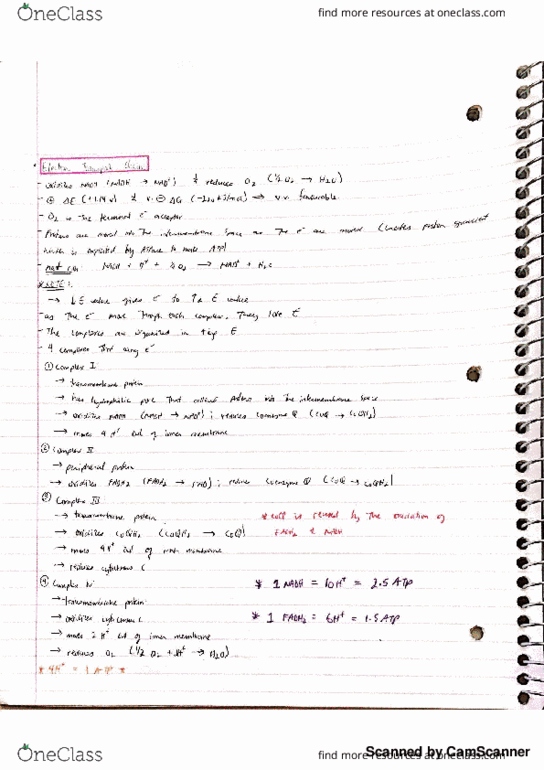 OneClass
find more resources at oneclass.com
Electron Transport Chain
- oxidizes NADH (NADH → NAD⁺) & reduces O₂ (½O₂ → H₂O)
- ⊕ ΔE (+1.14 v) & v. ⊖ ΔG ⟹ v.v. favourable
- O₂ is the terminal e⁻ acceptor
- Protons are moved into the intermembrane space as the e⁻ are moved (creates proton gradient
which is exploited by ATPase to make ATP)
- net rxn: NADH + H⁺ + ½O₂ → NAD⁺ + H₂O
* NOTE:
→ ↓E value gives e⁻ to ↑E value
- as the e⁻ move through each complex, they lose E
- The complexes are organized in E
- 4 complexes that carry e⁻
① Complex I
→ transmembrane protein
→ has hydrophilic pore that allows protons into the intermembrane space
→ oxidizes NADH (NADH → NAD⁺); reduces coenzyme Q (CoQ → CoQH₂)
→ moves 4H⁺ out of inner membrane
② Complex II
→ peripheral protein
→ oxidizes FADH₂ (FADH₂ → FAD); reduces coenzyme Q (CoQ → CoQH₂)
③ Complex III
→ transmembrane protein
* is by the oxidation of
→ oxidizes CoQH₂ (CoQH₂ → CoQ)
FADH₂ & NADH
→ moves 4H⁺ out of inner membrane
→ reduces cytochrome C
④ Complex IV
* 1 NADH = 10H⁺ = 2.5 ATP
→ transmembrane protein
→ oxidizes cytochrome C
* 1 FADH₂ = 6H⁺ = 1.5 ATP
→ moves 2H⁺ out of inner membrane
→ reduces O₂ (½O₂ + 2H⁺ → H₂O)
* 4H⁺ = 1 ATP *
OneClass
find more resources at oneclass.com
Scanned by CamScanner